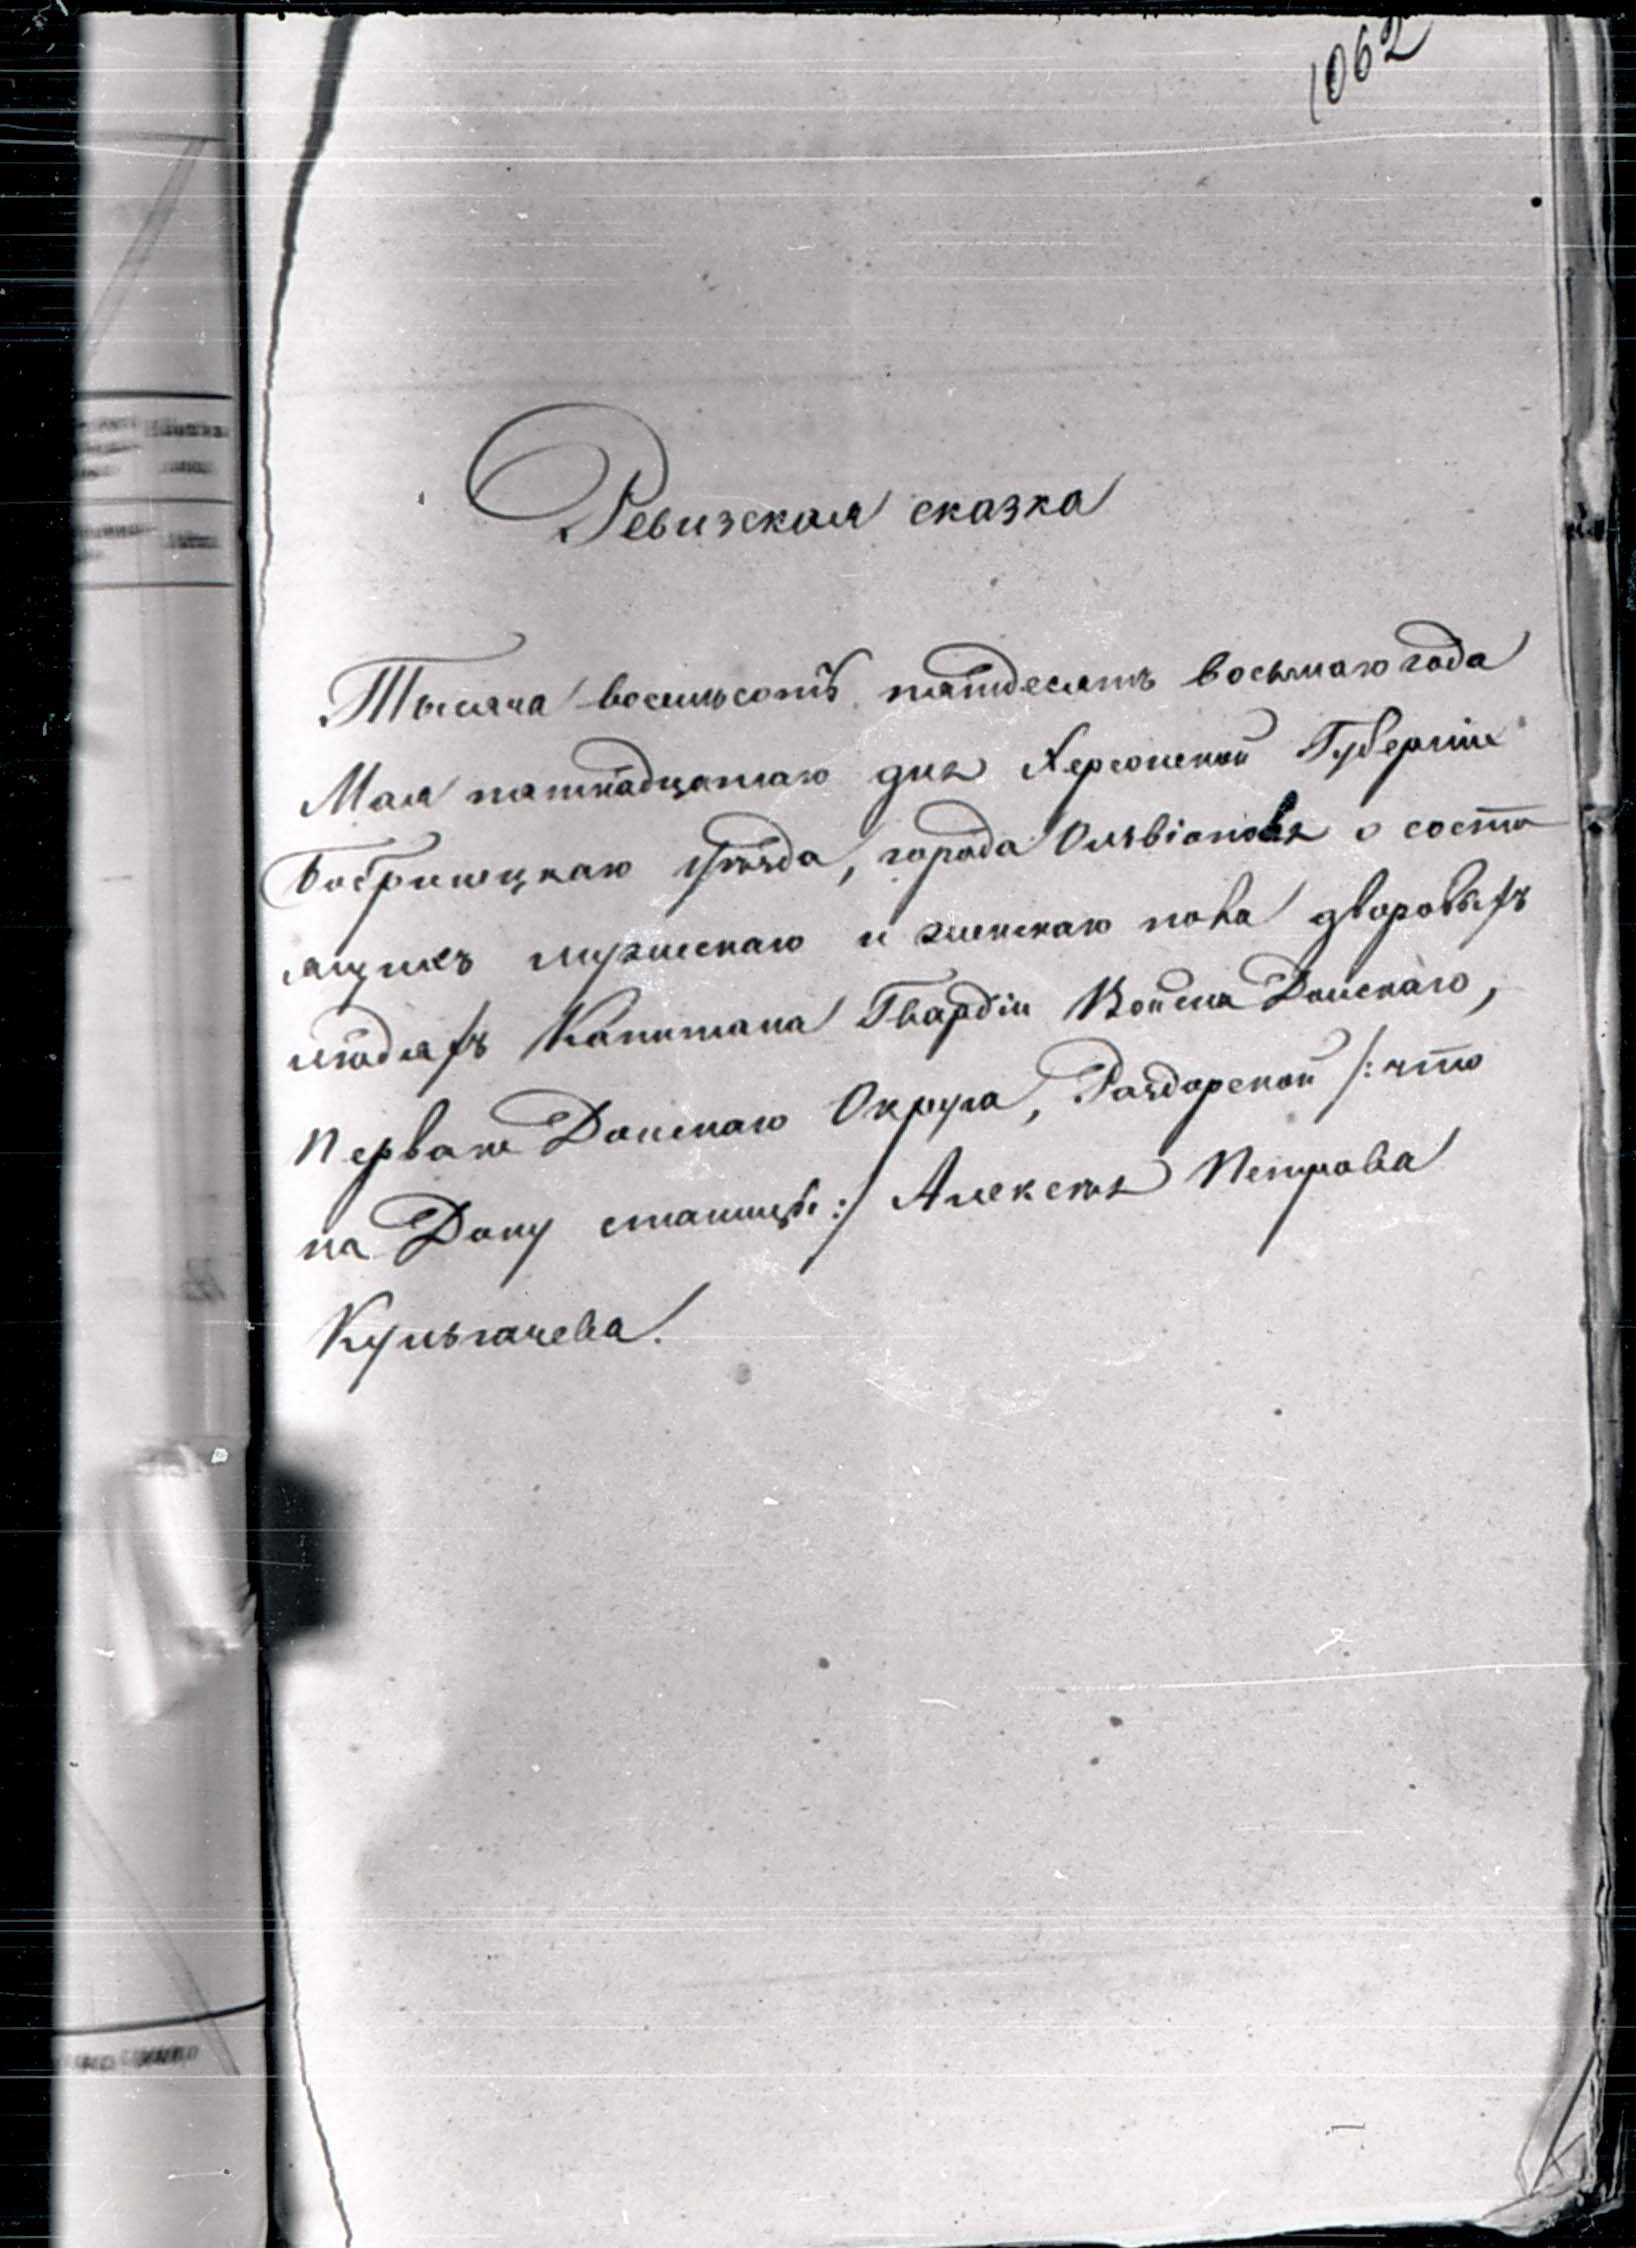 1062
Ревизская сказка
Тысяча восемьсотъ пятдесятъ восьмаго года
Мая пятнадцатаго дня Херсонской Губерніи
Бобринецкаго уѣзда, города Ольвіополя о состо
ящихъ мужескаго и женскаго пола дворовыхъ
людяхъ Капитана Гвардіи Войска Донскаго,
Перваго Донскаго Округа, Раздорской /: что
на Дону станицы :/ Алексѣя Петрова
Кульгачева.